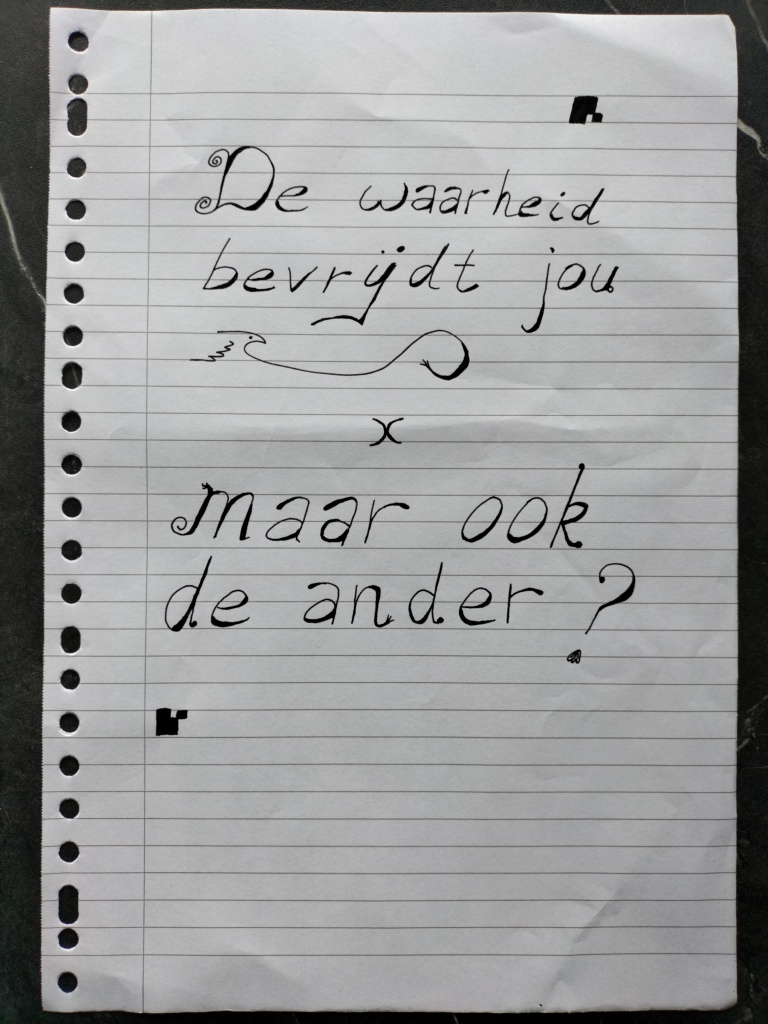 De waarheid
bevrijdt jou
x
maar ook
de ander?